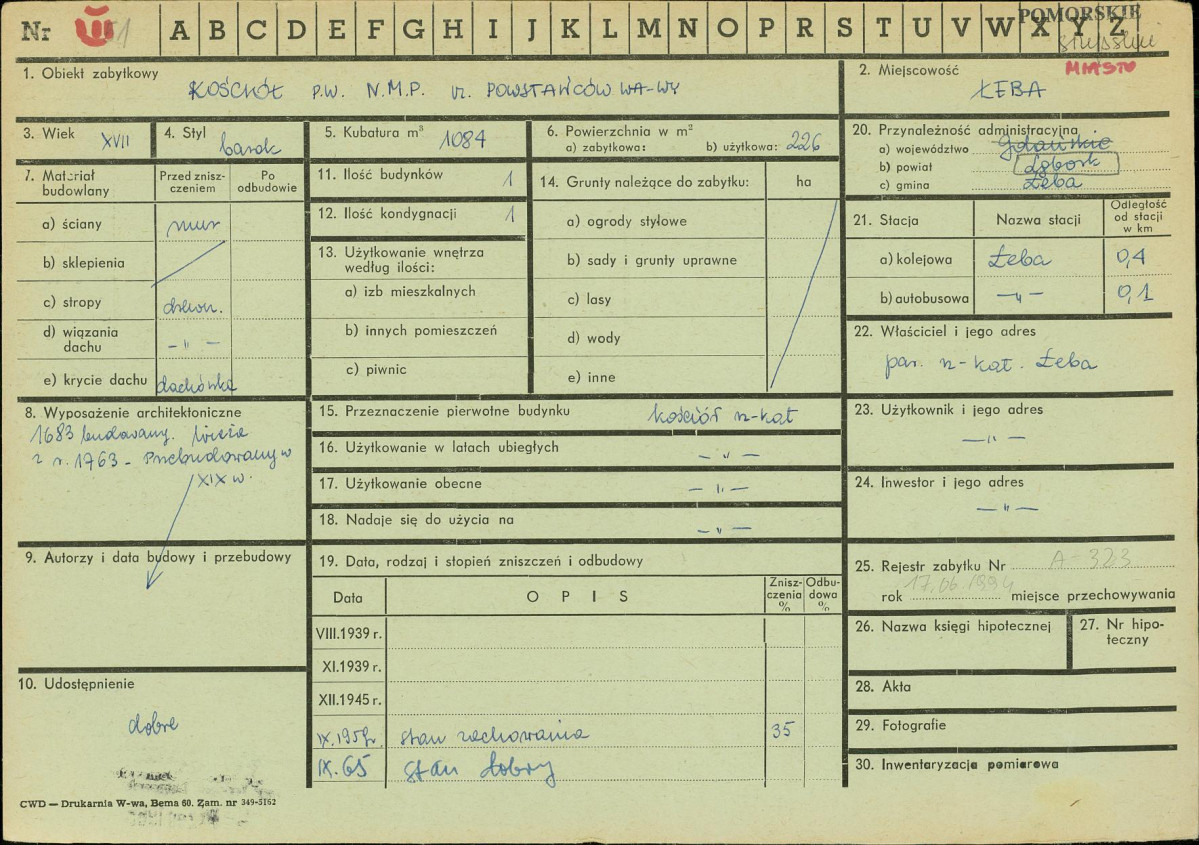 Nr
A B C D E F G H I J K L M N O P R S T U V W X Y Z
POMORSKIE
MIASTO
1. Obiekt zabytkowy
KOŚCIÓŁ P.W. N.M.P. ul. POWSTAŃCÓW WA-WY
2. Miejscowość
ŁEBA
3. Wiek XVII
4. Styl barok
5. Kubatura m³ 1084
6. Powierzchnia w m²
a) zabytkowa: b) użytkowa: 226
7. Materiał budowlany
Przed zniszczeniem
Po odbudowie
a) ściany mur
b) sklepienia
c) stropy drewn.
d) wiązania dachu -„-
e) krycie dachu dachówka
8. Wyposażenie architektoniczne
1683 budowany. Wieża
z r. 1763 - Przebudowany w
XIX w.
9. Autorzy i data budowy i przebudowy
10. Udostępnienie
dobre
CWD — Drukarnia W-wa, Bema 60. Zam. nr 349-5162
11. Ilość budynków 1
12. Ilość kondygnacji 1
13. Użytkowanie wnętrza
według ilości:
a) izb mieszkalnych
b) innych pomieszczeń
c) piwnic
14. Grunty należące do zabytku: ha
a) ogrody stylowe
b) sady i grunty uprawne
c) lasy
d) wody
e) inne
15. Przeznaczenie pierwotne budynku kościół rz-kat
16. Użytkowanie w latach ubiegłych -„-
17. Użytkowanie obecne -„-
18. Nadaje się do użycia na -„-
19. Data, rodzaj i stopień zniszczeń i odbudowy
Data
OPIS
Zniszczenia %
Odbudowa %
VIII.1939 r.
XI.1939 r.
XII.1945 r.
IX.1959r. stan zachowania 35
IX.65 stan dobry
20. Przynależność administracyjna
a) województwo Gdańskie
b) powiat Lębork
c) gmina Łeba
21. Stacja
Nazwa stacji
Odległość od stacji w km
a) kolejowa Łeba 0,4
b) autobusowa -„- 0,1
22. Właściciel i jego adres
par. rz-kat. Łeba
23. Użytkownik i jego adres
-„-
24. Inwestor i jego adres
-„-
25. Rejestr zabytku Nr A-323
rok 17.06.1994 miejsce przechowywania
26. Nazwa księgi hipotecznej
27. Nr hipoteczny
28. Akta
29. Fotografie
30. Inwentaryzacja pomiarowa